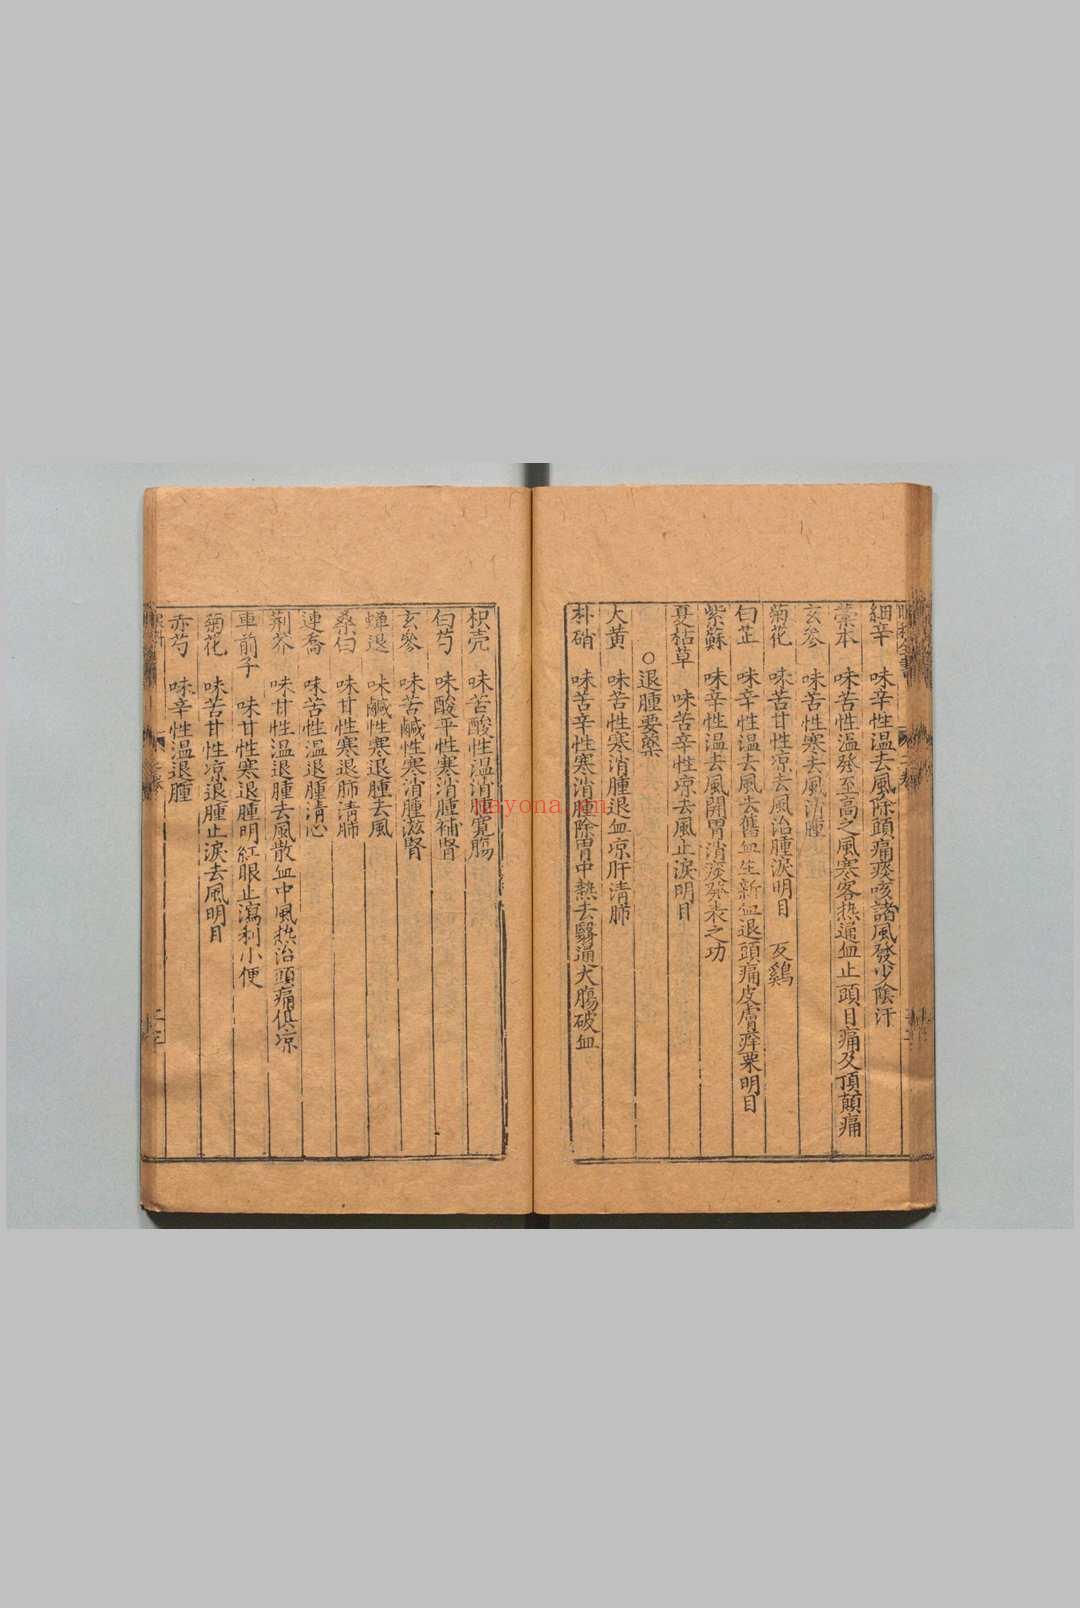 細辛 味辛性温去風除頭痛痰咳諸風發少陰汗
藁本 味苦性温發至高之風寒客热通血止頭目痛及頂顛痛
玄参 味苦性寒去風消腫
菊花 味苦甘性凉去風治腫淚明目 忌鷄
白芷 味辛性温去風去舊血生新血退頭痛皮膚痒栗明目
紫蘇 味辛性温去風開胃消痰發表之功
夏枯草 味苦辛性凉去風止淚明目
○退腫要藥
大黄 味苦性寒消腫退血凉肝清肺
朴硝 味苦辛性寒消腫除胃中熱去翳通大腸破血
枳壳 味苦酸性温消腫寛腸
白芍 味酸平性寒消腫補腎
玄參 味苦鹹性寒消腫滋腎
蟬退 味鹹性寒退腫去風
桑白 味甘性寒退肺清肺
連喬 味苦性温退腫清心
荆芥 味甘性温退腫去風散血中風热治頭痛俱凉
車前子 味甘性寒退腫明紅眼止瀉利小便
菊花 味苦甘性凉退腫止淚去風明目
赤芍 味辛性温退腫
nayona.cn